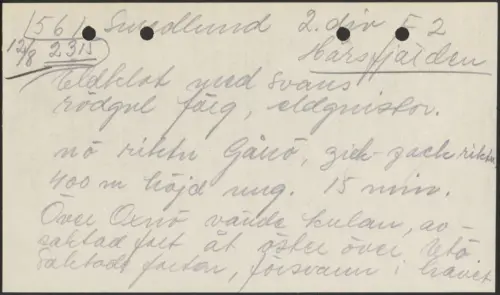 (56) Swedlund 2. div F2
12/8 2315 Hårsfjärden
Eldklot med svans
rödgul färg, eldgnistor.
nö riktn Gånö, zick-zack riktn,
400 m höjd ung. 15 min.
Över Oxnö vände kulan, av-
saktad fart åt öster över Utö
saktade farten, försvann i havet